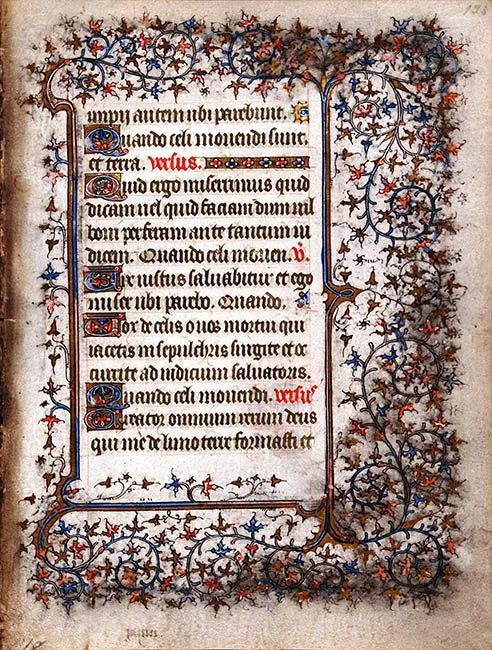 impii autem ubi parebunt.
Quando celi movendi sunt.
et terra. versus.
Quid ergo miserrimus quid
dicam vel quid faciam dum nil
boni perferam ante tantum iu
dicem. Quando celi moven. V.
Vix iustus salvabitur et ego
miser ubi parebo. Quando.
Vox de celis o vos mortui qui
iacetis in sepulchris surgite et oc
currite ad iudicium salvatoris.
Quando celi movendi. versus
Creator omnium rerum deus
qui me de limo terre formasti et